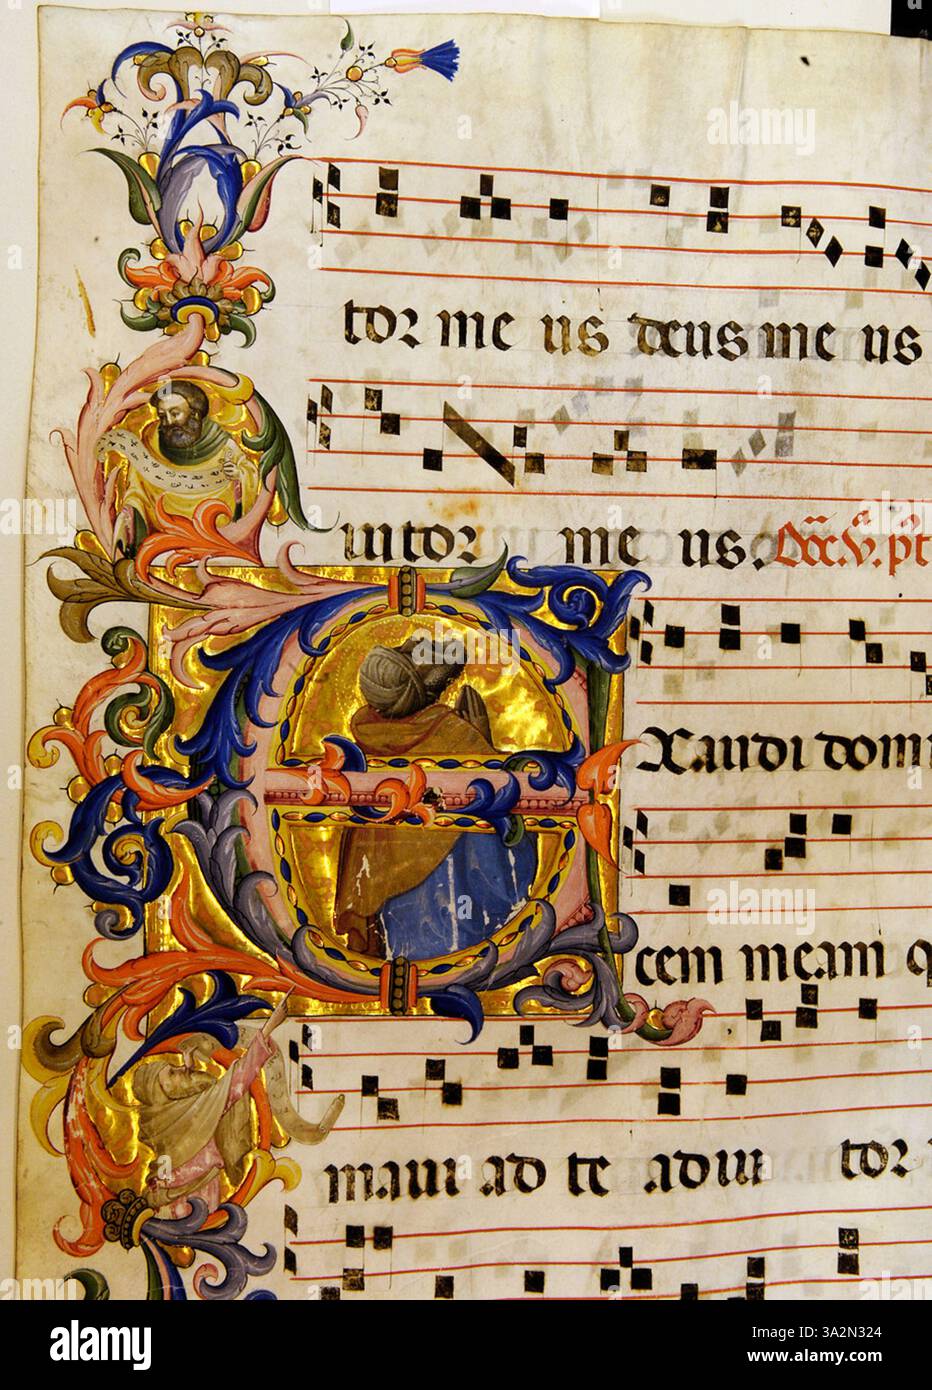 tor me us deus me us
iutor me us. Dñica .v. pt
Exaudi domi
cem meam q
maui ad te adiu tor
alamy
Image ID: 3A2N324
www.alamy.com